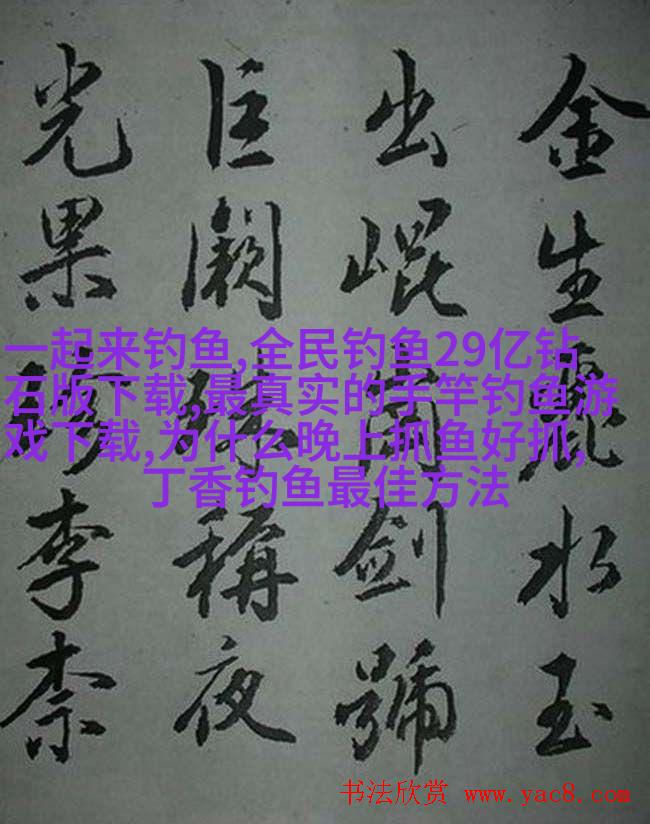 金生麗水玉
出崐岡劍號
巨闕珠稱夜
光果珍李柰
一起来钓鱼,全民钓鱼29亿钻
石版下载,最真实的手竿钓鱼游
戏下载,为什么晚上抓鱼好抓,
丁香钓鱼最佳方法
书法欣赏 www.yac8.com